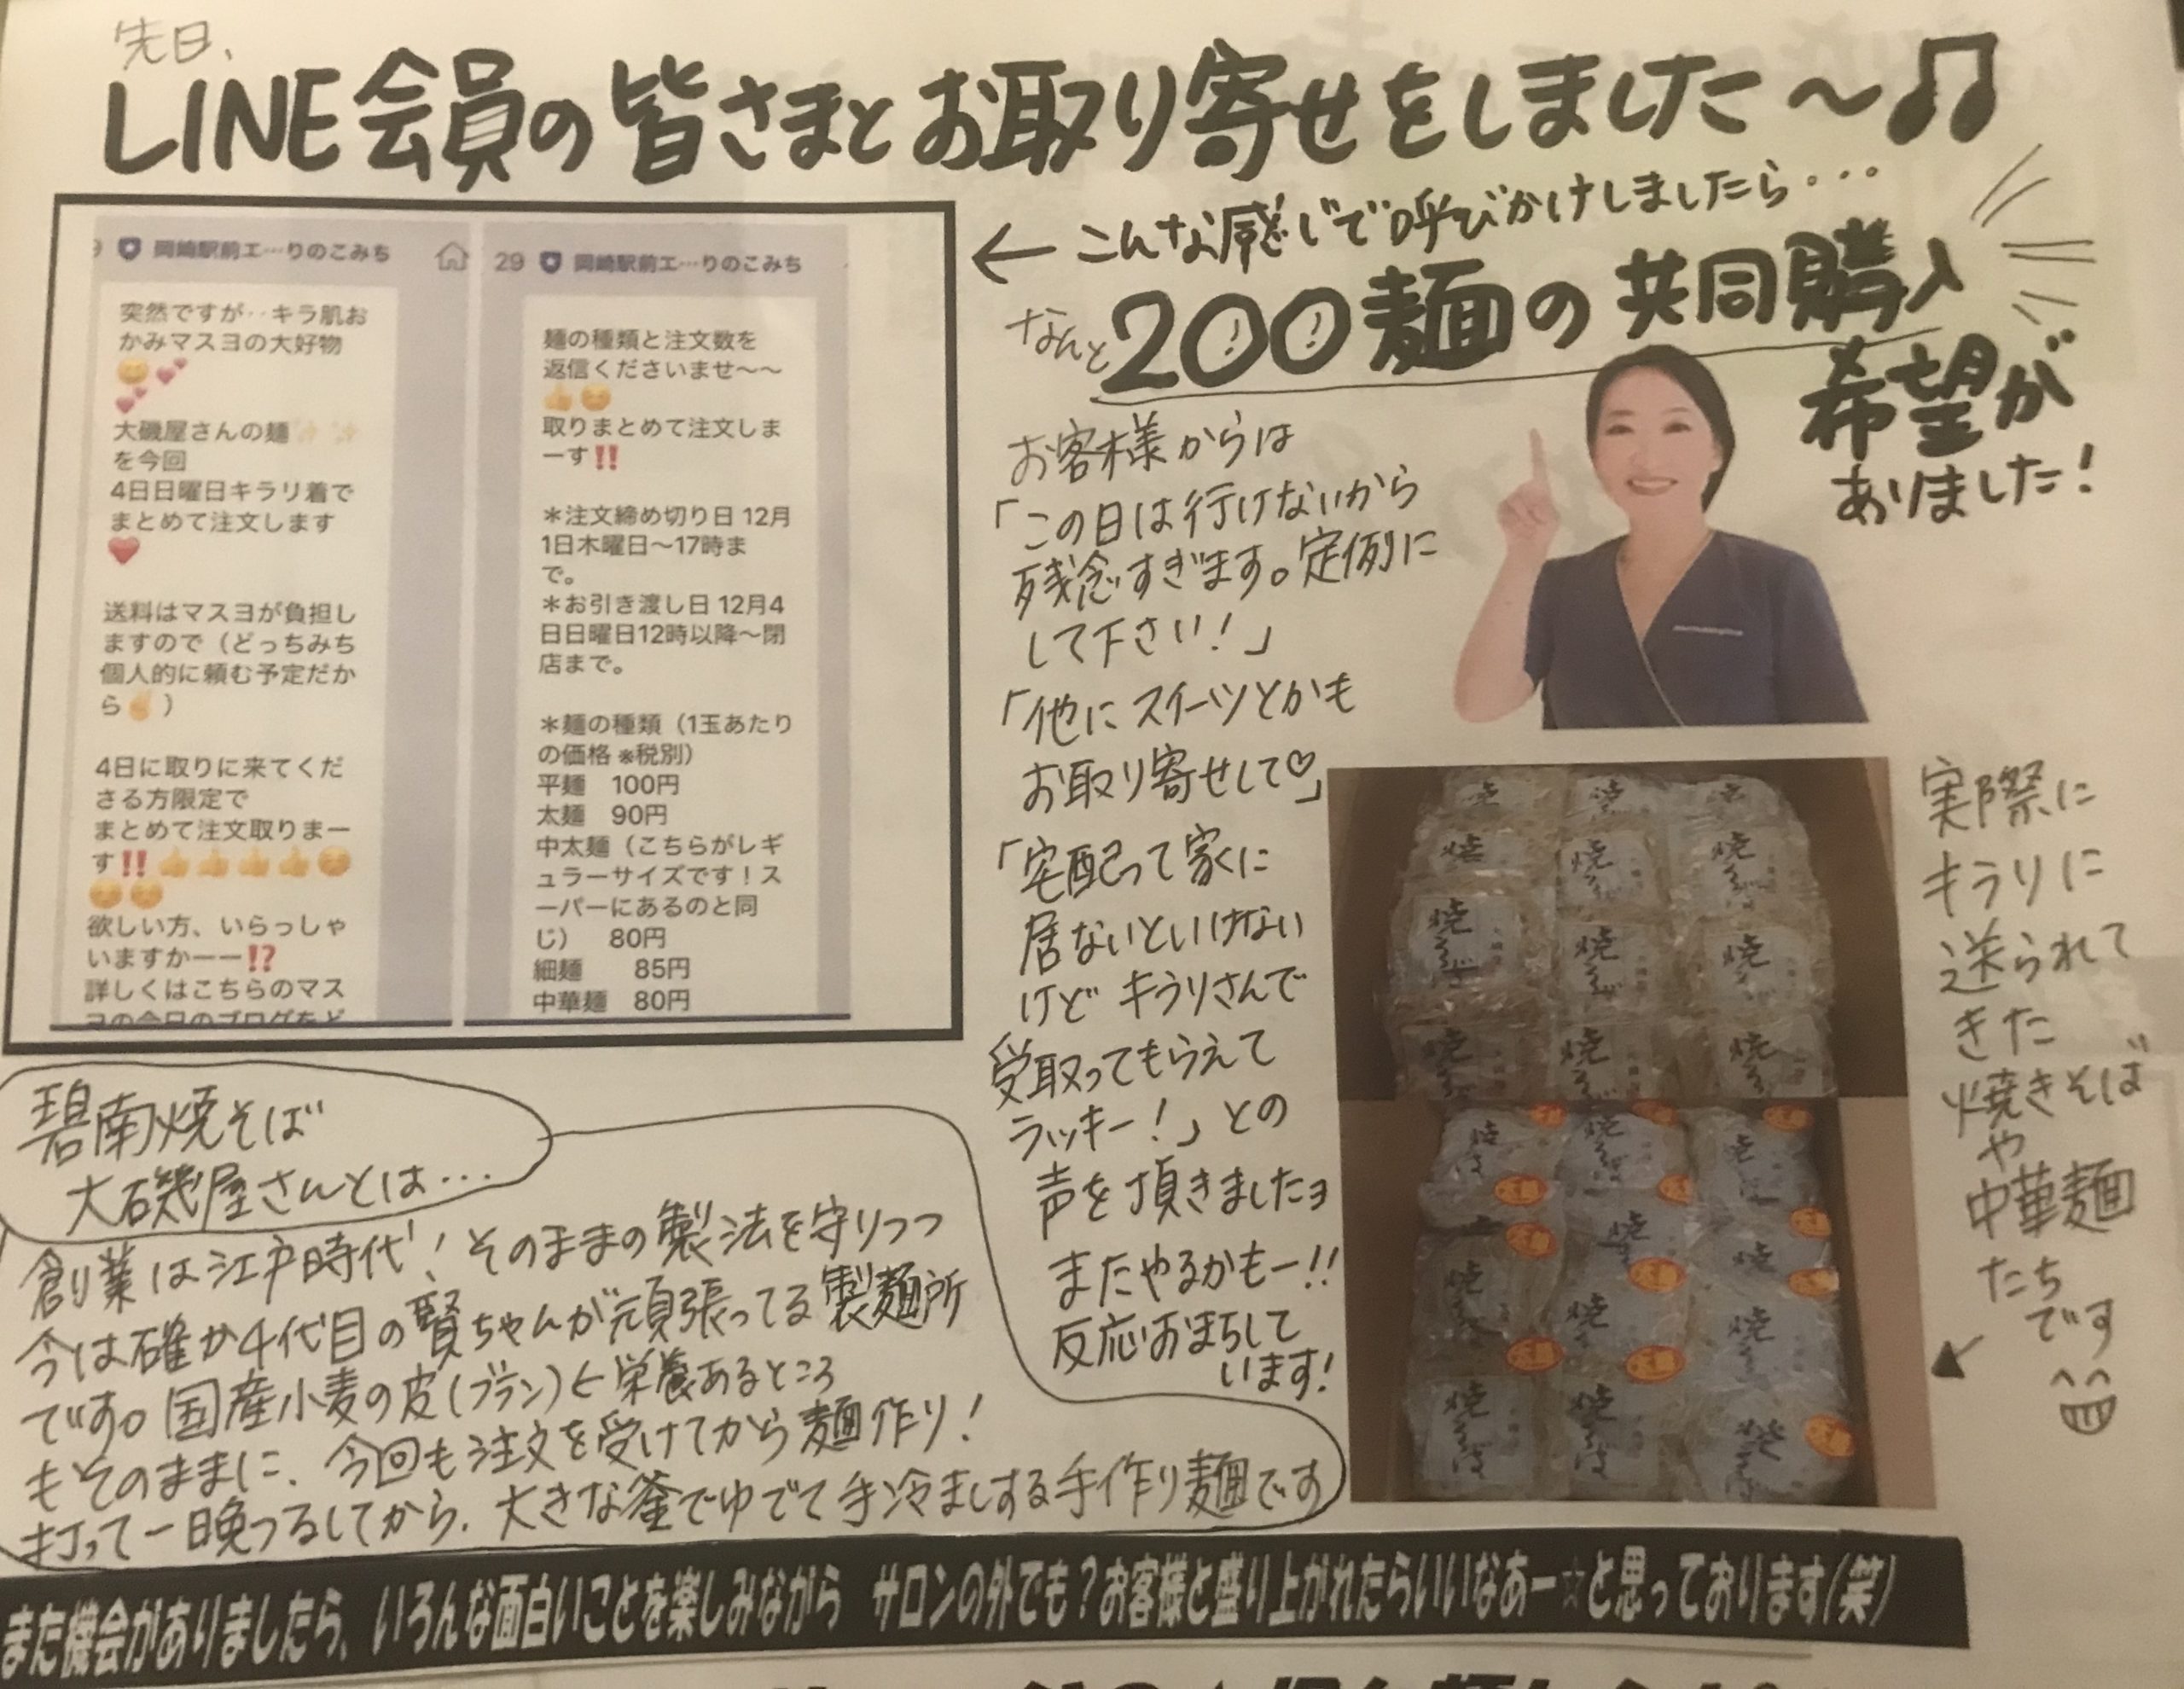 先日、
LINE会員の皆さまとお取り寄せをしました〜♫
9 岡崎駅前エ…りのこみち
突然ですが‥キラ肌お
かみマスヨの大好物
😊💕
💕
大磯屋さんの麺✨✨
を今回
4日日曜日キラリ着で
まとめて注文します
❤️
送料はマスヨが負担し
ますので（どっちみち
個人的に頼む予定だか
ら✌️）
4日に取りに来てくだ
さる方限定で
まとめて注文取りまー
す‼️👍👍👍👍😊
😊😊
欲しい方、いらっしゃ
いますかーー⁉️
詳しくはこちらのマス
ヨの今日のブログをど
29 岡崎駅前エ…りのこみち
麺の種類と注文数を
返信くださいませ〜〜
👍😊
取りまとめて注文しま
ーす‼️
＊注文締め切り日 12月
1日木曜日〜17時ま
で。
＊お引き渡し日 12月4
日日曜日12時以降〜閉
店まで。
＊麺の種類（1玉あたり
の価格 ※税別）
平麺　100円
太麺　90円
中太麺（こちらがレギ
ュラーサイズです！ス
ーパーにあるのと同
じ）　80円
細麺　　85円
中華麺　80円
←こんな感じで呼びかけしましたら…
なんと200麺の共同購入
希望が
ありました！
お客様からは
「この日は行けないから
残念すぎます。定例に
して下さい！」
「他にスイーツとかも
お取り寄せして♡」
「宅配って家に
居ないといけない
けどキラリさんで
受取ってもらえて
ラッキー！」との
声を頂きましたヨ
またやるかもー!!
反応おまちして
います!
実際に
キラリに
送られて
きた
焼きそば
や
中華麺
たち
です
焼そば
碧南焼そば
大磯屋さんとは…
創業は江戸時代！そのままの製法を守りつつ
今は確か4代目の賢ちゃんが頑張ってる製麺所
です。国産小麦の皮(ブラン)←栄養あるところ
もそのままに、今回も注文を受けてから麺作り！
打って一晩つるしてから、大きな釜でゆでて手冷ましする手作り麺です
また機会がありましたら、いろんな面白いことを楽しみながら　サロンの外でも？お客様と盛り上がれたらいいなあー☆と思っております(笑)